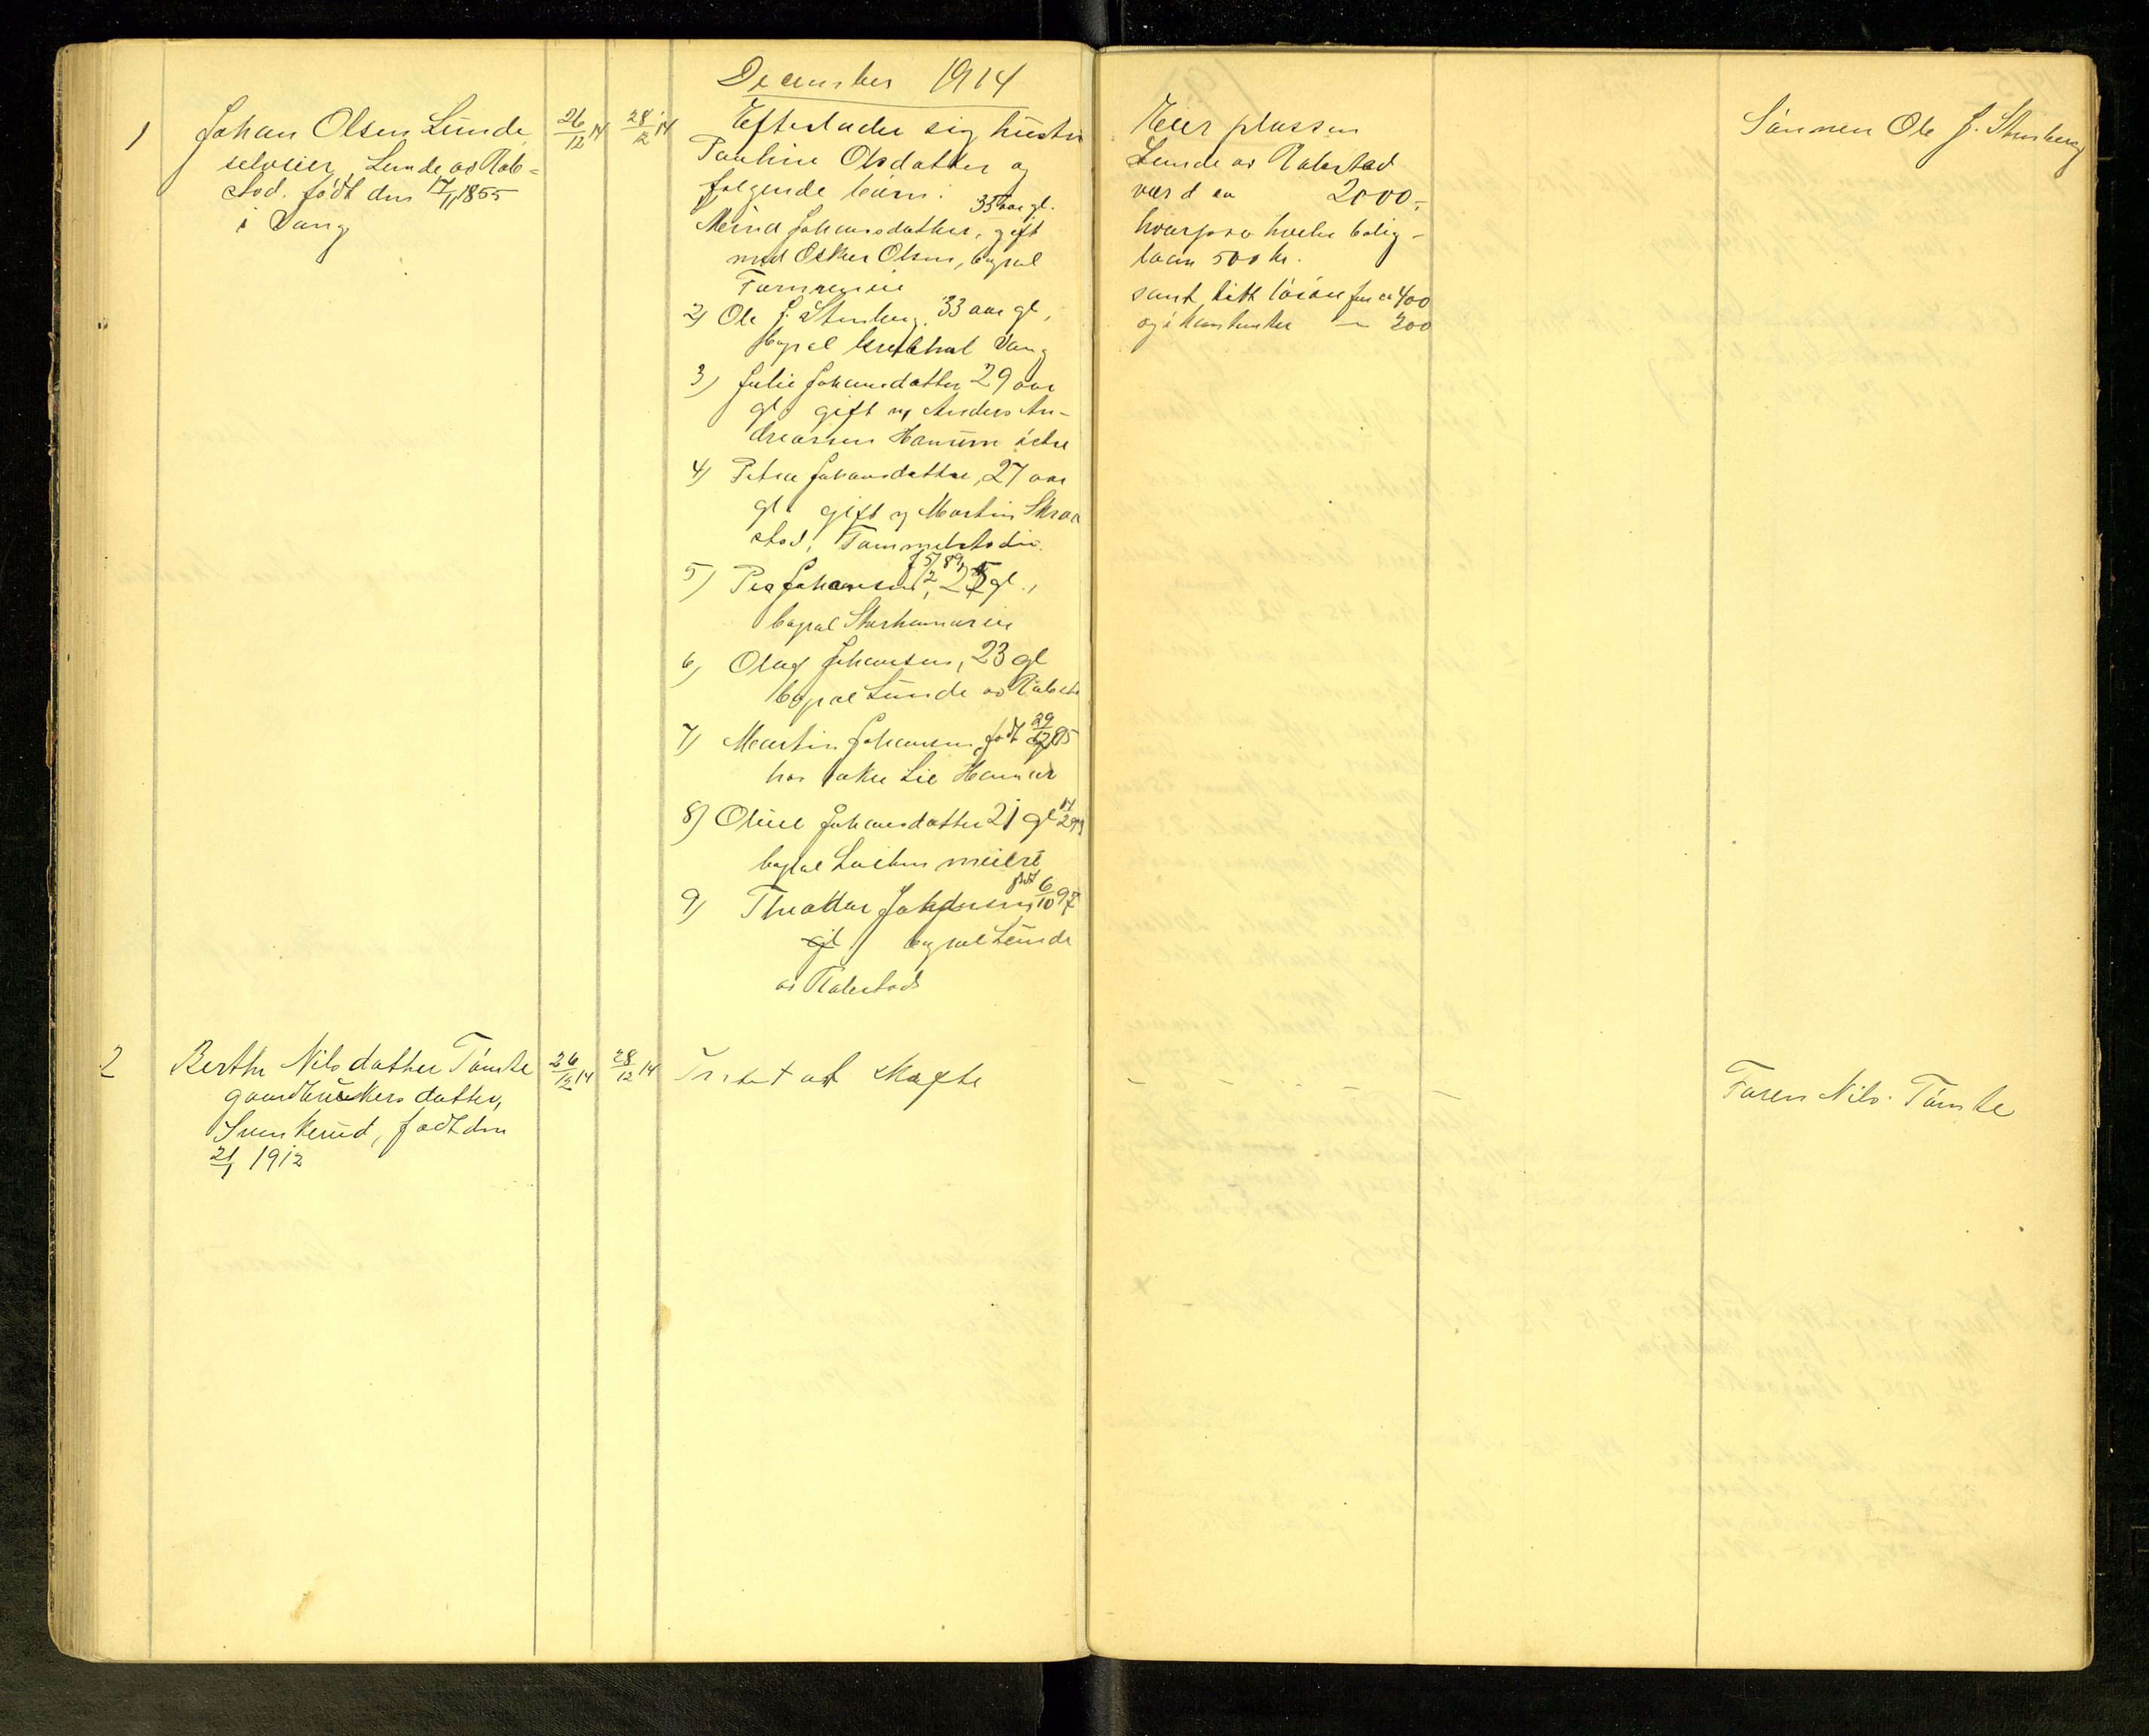 December 1914
1 Johan Olsen Lunde,
selveier, Lunde av Rab-
stad. født den 17/1 1855
i Vang
26/12 14 28/12 14
Efterlader sig hustru
Pauline Olsdatter og
følgende børn:
35 aar gl.
Mina Johansdatter, gift
med Oskar Olsen, bopæl
Furnesveien
2) Ole J. Stenberg, 33 aar gl,
bopæl Vang
3) Julie Johansdatter 29 aar
gl. gift m Anders An-
dreassen Hanum østre
4) Petra Johansdatter, 27 aar
gl. gift m Martin Skraa
stad, Tommelstadie.
f 5/2 89
5) Per Johansen, 25 gl.,
bopæl Storhamarin
6) Olaf Johansen, 23 gl
bopæl Lunde av Rabsta
7) Martin Johansen, født 29/12 95
hos baker Lie Hamar
8) Oline Johansdatter 21 gl 14/2 93
bopæl Løiten meieri
9) Theodor Johansen, født 6/10 97
gl bopæl Lunde
av Rabstad
Eier plassen
Lunde av Rabstad
værd ca 2000,-
hvorpaa hviler bolig-
laan 500 kr.
samt litt løsøre for ca 400
og i kontanter — 200
Sønnen Ole J. Stenberg
2 Berthe Nilsdatter Tømte
gaardbrukers datter,
Svenkerud, født den
21/1 1912
26/12 14 28/12 14
Intet at skifte
— — —
Faren Nils Tømte